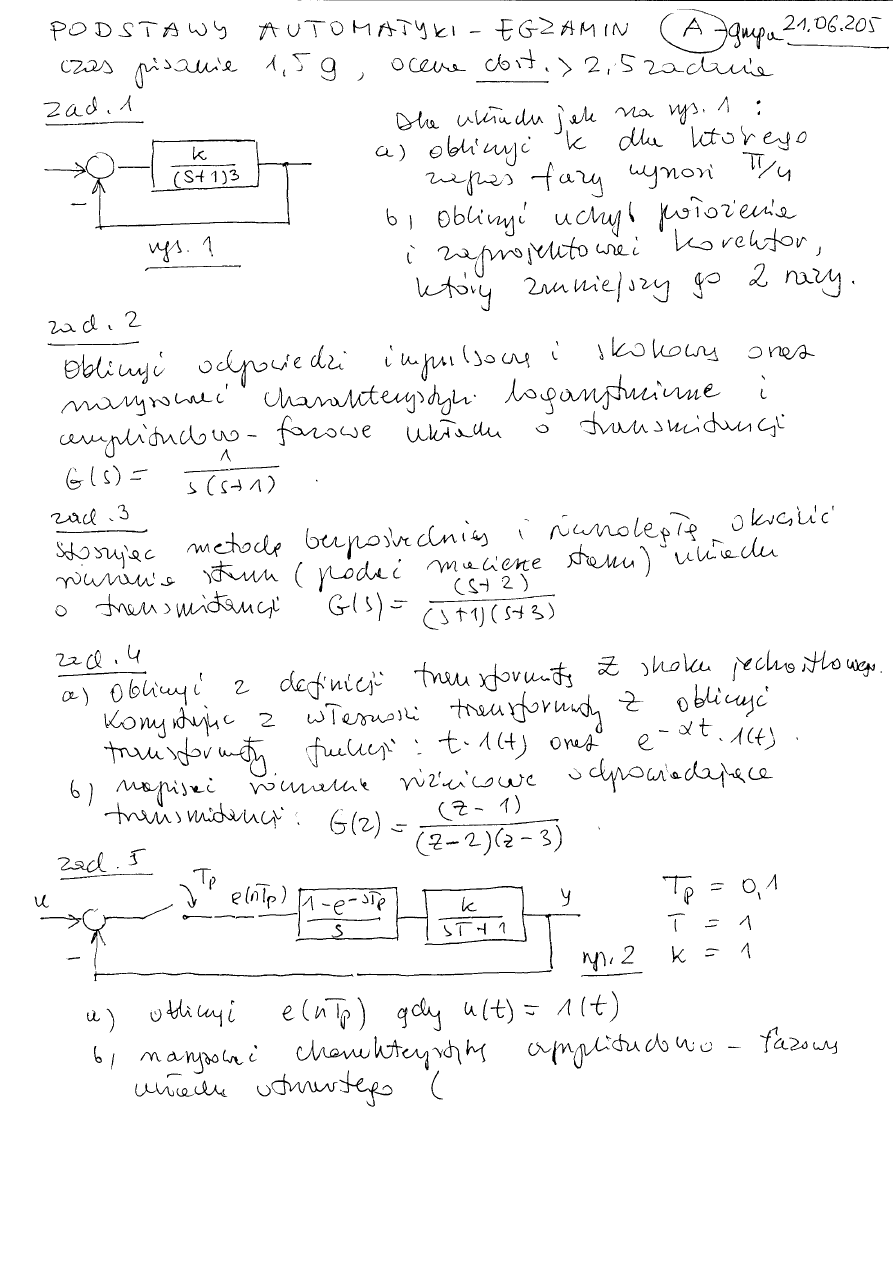 PODSTAWY AUTOMATYKI - EGZAMIN A -grupa 21.06.205
czas pisania 1,5 g, ocena dost. > 2,5 zadania
zad. 1
Dla układu jak na rys. 1 :
a) obliczyć k dla którego
zapas fazy wynosi π/4
b) Obliczyć uchyb położenia
i zaprojektować korektor,
który zmniejszy go 2 razy.
k
(s+1)3
-
rys. 1
zad. 2
Obliczyć odpowiedzi impulsową i skokową oraz
narysować charakterystyki logarytmiczne i
amplitudowo-fazowe układu o transmitancji
G(s) = 1
s(s+1)
zad. 3
Stosując metodę bezpośrednią i równoległą określić
równanie stanu (podać macierze stanu) układu
o transmitancji G(s) = (s+2)
(s+1)(s+3)
zad. 4
a) Obliczyć z definicji transformatę Z skoku jednostkowego.
Korzystając z własności transformaty Z obliczyć
transformaty funkcji : t·1(t) oraz e-αt·1(t).
b) napisać równanie różnicowe odpowiadające
transmitancji : G(z) = (z-1)
(z-2)(z-3)
zad. 5
u Tp e(nTp) 1-e-sTp
s
k
sT+1
y
-
rys. 2
Tp = 0,1
T = 1
k = 1
a) obliczyć e(nTp) gdy u(t) = 1(t)
b) narysować charakterystykę amplitudowo-fazową
układu otwartego (